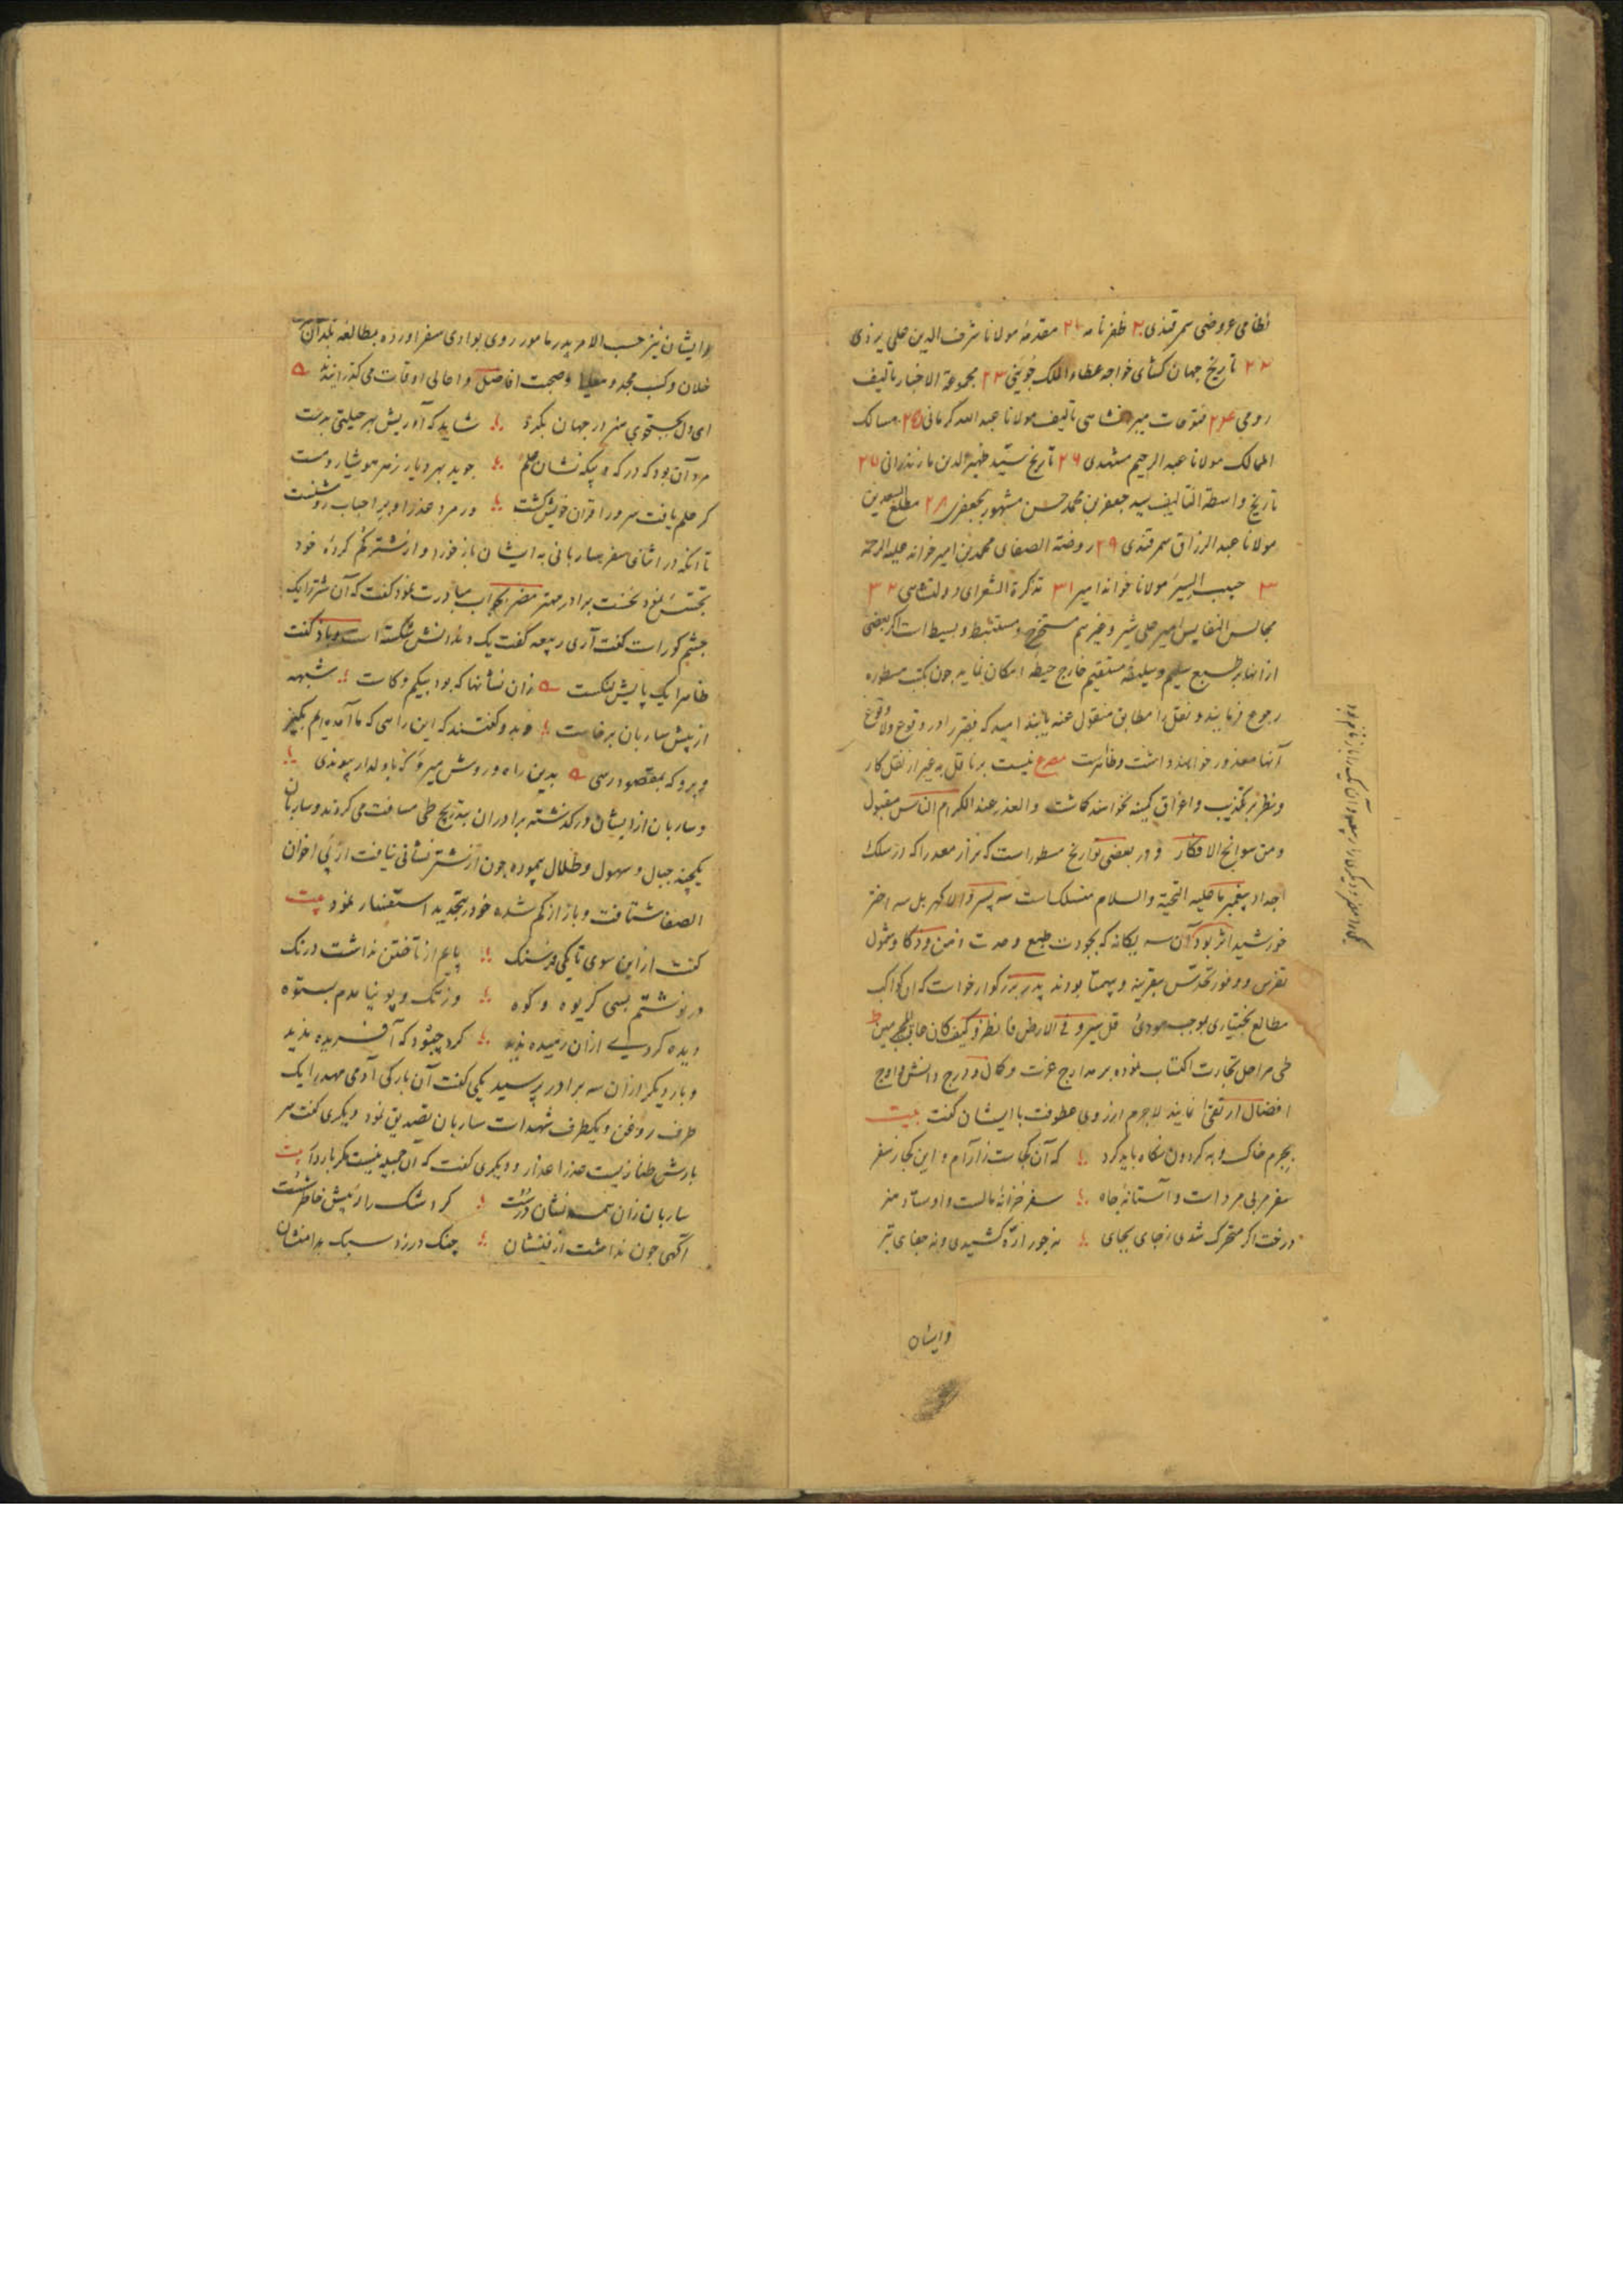 نظامی عروضی سمرقندی ۲۰ ظفرنامه ۲۱ مقدمهٔ مولانا شرف الدین علی یزدی
۲۲ تاریخ جهان کشای خواجه عطاء الملک جوینی ۲۳ مجموعة الاخبار تالیف
رومی ۲۴ فتوحات میبر شاهی تالیف مولانا عبد الله کرمانی ۲۵ مسالک
الممالک مولانا عبد الرحیم مشهدی ۲۶ تاریخ سید ظهیر الدین مازندرانی ۲۷
تاریخ واسطة التالیف سید جعفر بن محمد حسن مشهور بجعفری ۲۸ مطلع السعدین
مولانا عبد الرزاق سمرقندی ۲۹ روضة الصفای محمد بن امیر خوانه علیه الرحمة
۳۰ حبیب السیر مولانا خواند امیر ۳۱ تذکرة الشعرای دولتشاهی ۳۲
مجالس النفایس امیر علی شیر و غیرهم مستخرج و مستنبط و بسیط است اکر بعضی
از انها بر طبع سلیم و سلیقهٔ مستقیم خارج حیطهٔ امکان نماید چون بکتب مسطوره
رجوع فرمایند و نقل را مطابق منقول عنه یابند امید که فقیر را در وقوع و لا وقوع
آنها معذور خواهند داشت و ظاهرست مصرع نیست بر ناقل به غیر از نقل کار
و نظر بر تکذیب و اغراق کمینه نخواهند کاشت والعذر عند الکرام الناس مقبول
و من سوانح الافکار و در بعضی تواریخ مسطور است که نزار معد را که در سلک
اجداد پیغمبر ما علیه التحیة والسلام منسلک است سه پسر والا کهر بل سه اختر
خورشید اثر بود آن سه یکانه که بجودت طبع و حدت ذهن و ذکا و شمول
تفرس و وفور تحدس بیقرینه و بیهمتا بودند پدر بزرکوار خواست که آن کواکب
مطالع بختیاری بموجب مودی قل سیروا فی الارض فانظروا کیف کان عاقبة المجرمین
طی مراحل تجارت اکتساب نموده بر مدارج عزت و کمال و درج دانش و اوج
افضال ارتقی نمایند لاجرم از روی عطوفت با ایشان کفت بیت
بجرم خاک و به کردون نکاه باید کرد که آن کجاست ز آرام و این کجا ز سفر
سفر مربی مردست و آستانهٔ جاه سفر خزانهٔ مالست و اوستاد هنر
درخت اکر متحرک شدی ز جای بجای نه جور اره کشیدی و نه جفای تبر
وایشان
وایشان نیز حسب الامر پدر مامور روی بوادی سفر اورده بمطالعه بلدان
خلان و کسب مجد و معلا و صحبت افاضل و اعالی اوقات می کذرانیدند
ای دل بجستجوی هنر در جهان بکرد شاید که آوریش بهر حیلتی بدست
مرد آن بود که در که و بیکه نشان علم جوید بهر دیار ز هر هوشیار و مست
کر علم یافت سرور اقران خویش کشت ور مرد عذر او بر احباب روشنست
تا آنکه در اثنای سفر ساربانی به ایشان بازخورد و از شتر کم کردهٔ خود
تجسس نمود نخست برادر مهتر مضر بجواب مبادرت نمود کفت که آن شتر را یک
چشم کور است کفت آری ربیعه کفت یک دندانش شکسته است و باز کفت
ظاهرا یک پایش لنکست زان نشانها که بود بیکم و کاست شبهه
از پیش ساربان برخاست وبدو کفتند که این راهی که ما آمده ایم بکیر
و برو که بمقصود رسی بدین راه و روش میرو که با دلدار پیوندی
و ساربان از ایشان در کذشته برادران بتدریج طی مسافت می کردند و ساربان
یکچند جبال و سهول و ظلال پیموده چون از شتر نشانی نیافت از پی اخوان
الصفا شتافت و باز از کم شده خود بتجدید استفسار نمود بیت
کفت از این سوی تا یکی فرسنک پایم از تاختن نداشت درنک
در نوشتم بسی کریوه و کوه وز تک و پو نیامدم بستوه
دیده کردی از آن رمیده ندید کرد چبود که آفریده ندید
و بار دیکر از آن سه برادر پرسید یکی کفت آن بارکی آدمی مهد را یک
طرف روغن و یکطرف شهد است ساربان تصدیق نمود دیکری کفت سر
بارش طناز یست عذرا عذار و دیکری کفت که آن جمیله نیست مکر باردار بیت
ساربان زان همه نشان درست کرد شک را ز پیش خاطر شست
آکهی چون نداشت از فنشان چنک در زد سبک بدامنشان